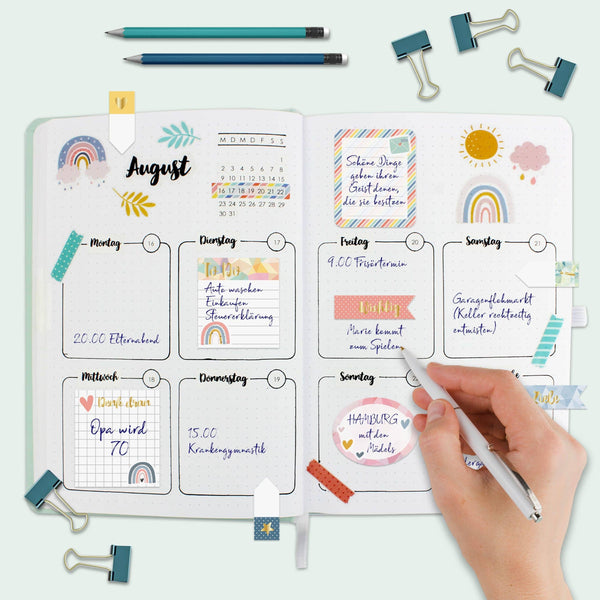 August
M D M D F S S
1
2 3 4 5 6 7 8
9 10 11 12 13 14 15
16 17 18 19 20 21 22
23 24 25 26 27 28 29
30 31
Schöne Dinge
geben ihren
Geist denen,
die sie besitzen
Montag 16
20.00 Elternabend
Dienstag 17
To Do's
Auto waschen
Einkaufen
Steuererklärung
Freitag 20
9.00 Frisörtermin
Wichtig
Marie kommt
zum Spielen
Samstag 21
Garagenflohmarkt
(Keller rechtzeitig
entmisten)
Mittwoch 18
Denk daran
Opa wird
70
Donnerstag 19
15.00
Krankengymnastik
Sonntag
HAMBURG
mit den
Mädels